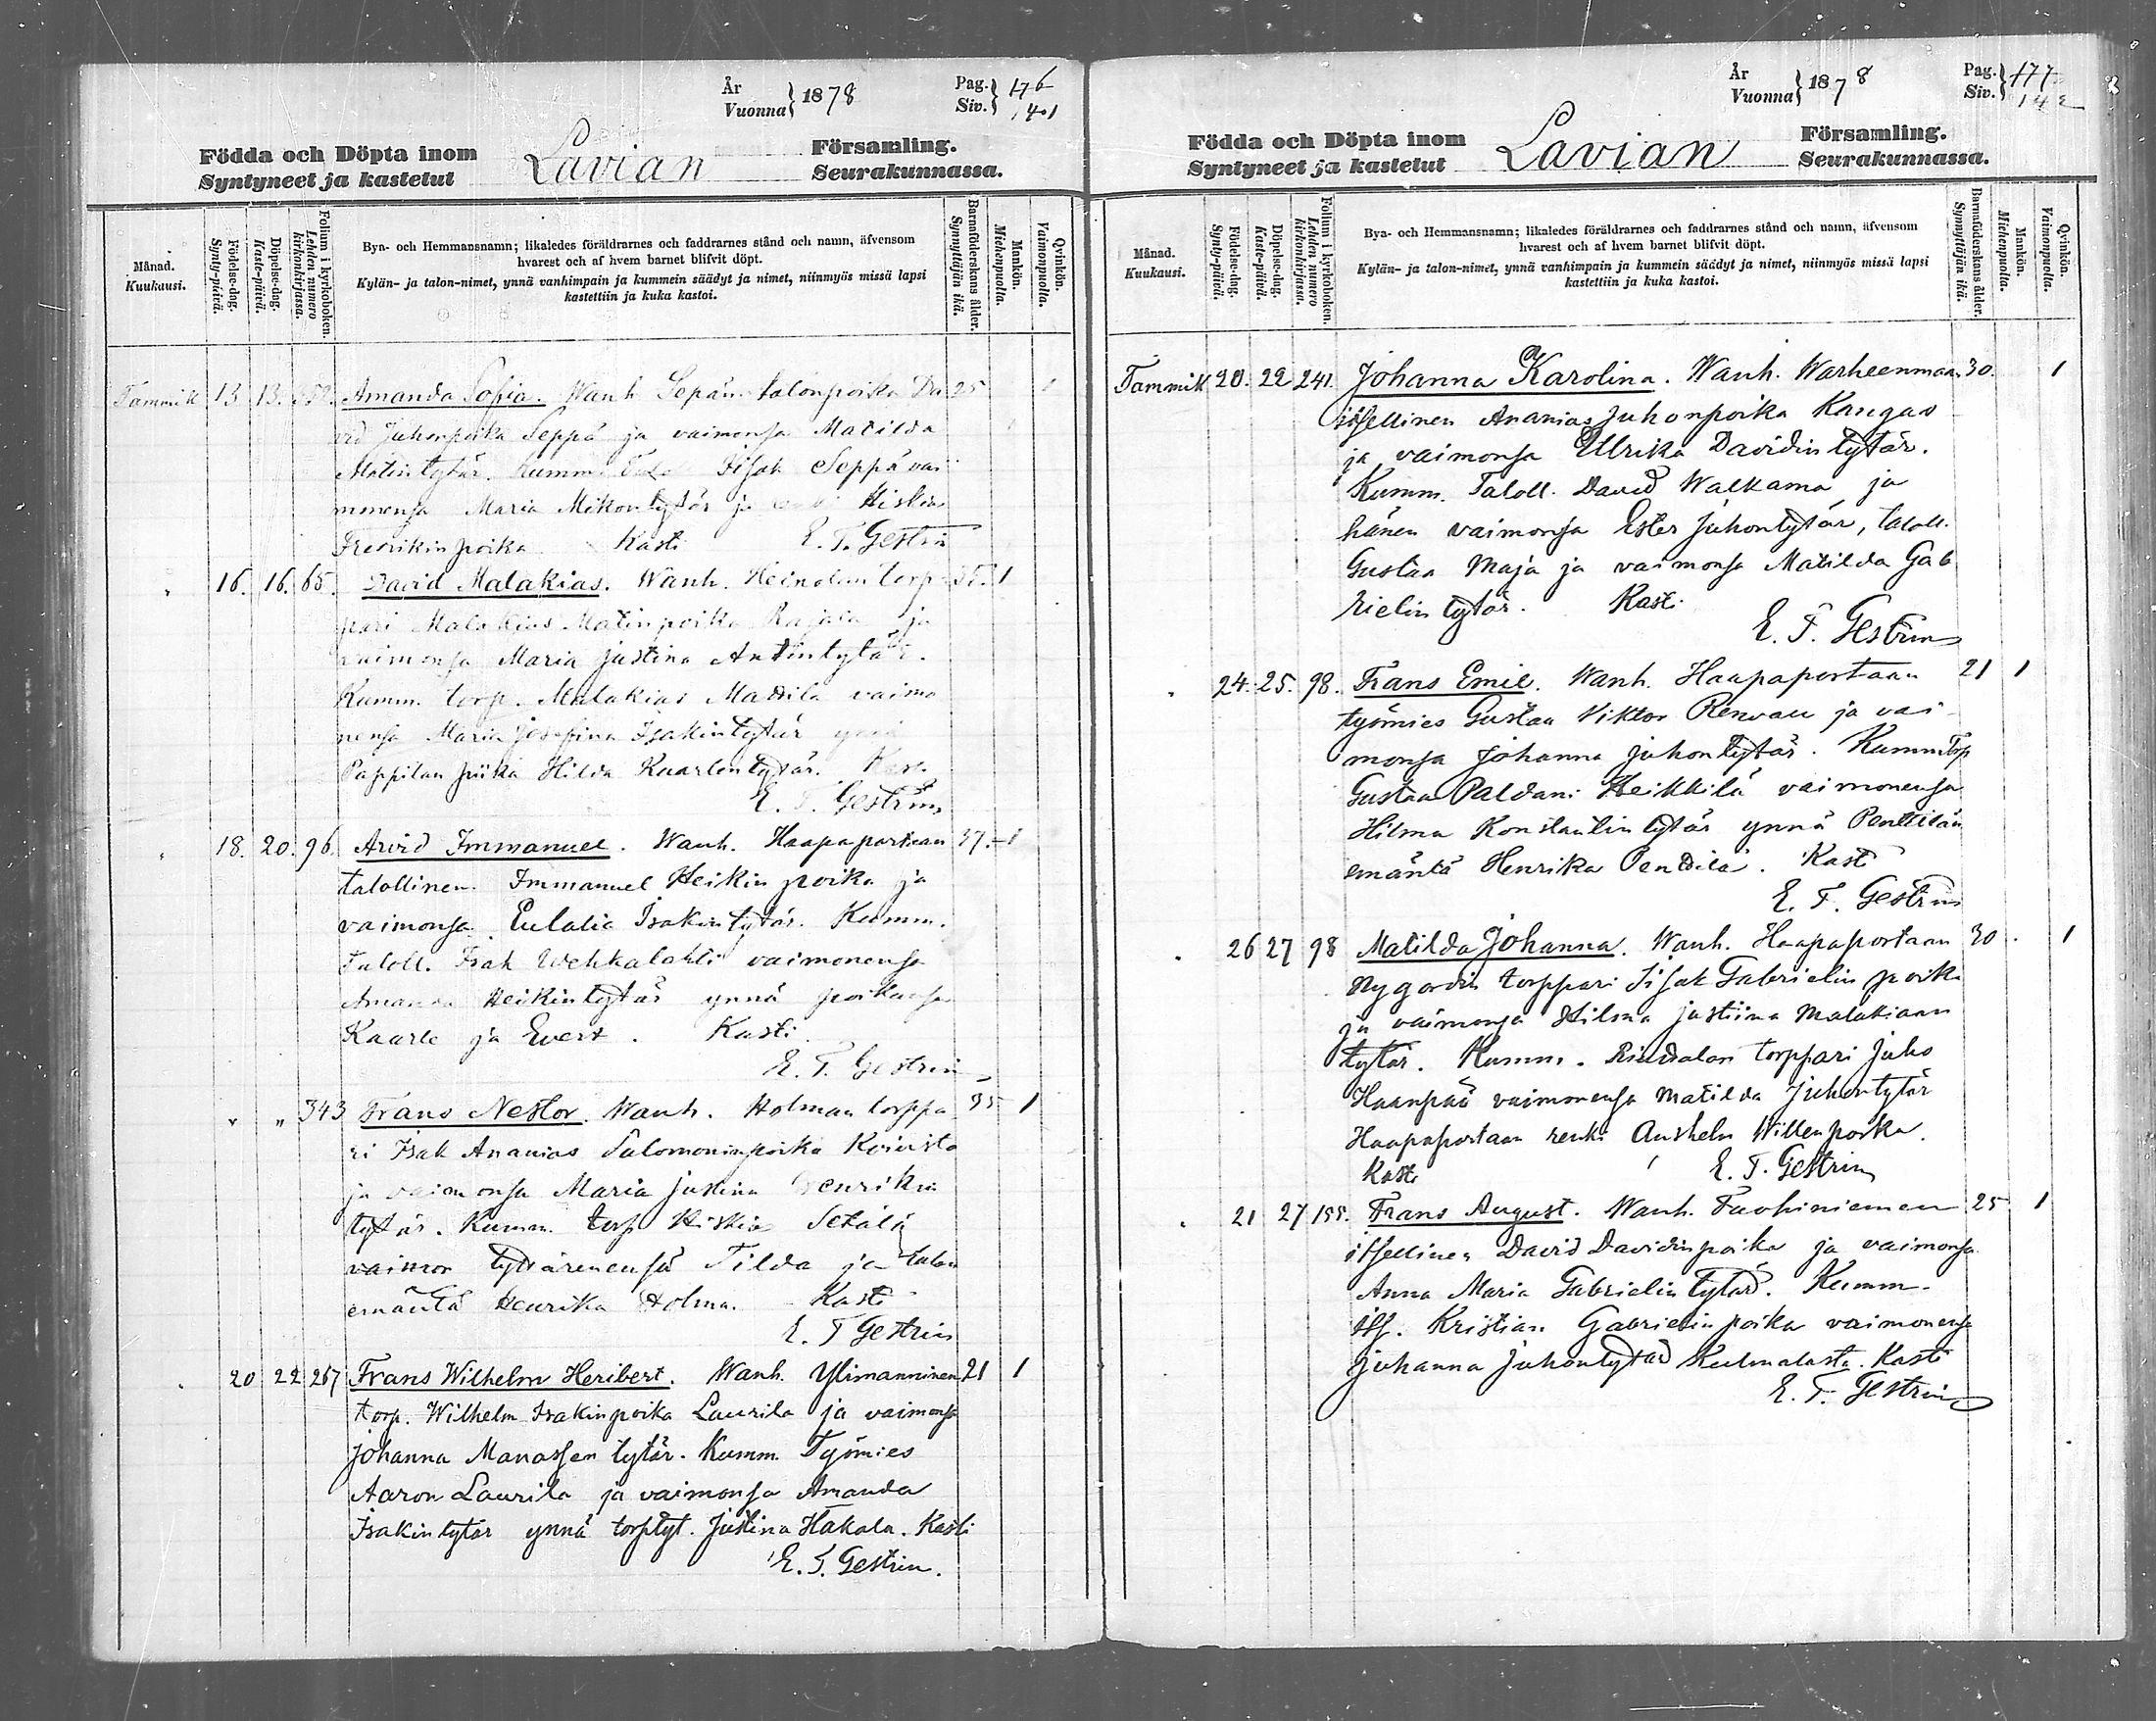 År
Vuonna } 1878
Pag.
Siv. } 176
141
Födda och Döpta inom
Syntyneet ja kastetut
Lavian
Församling.
Seurakunnassa.
Månad.
Kuukausi.
Födelse-dag.
Synty-päivä.
Döpelse-dag.
Kaste-päivä.
Folium i kyrkoboken.
Lehden numero kirkonkirjassa.
Bya- och Hemmansnamn; likaledes föräldrarnes och faddrarnes stånd och namn, äfvensom
hvarest och af hvem barnet blifvit döpt.
Kylän- ja talon-nimet, ynnä vanhimpain ja kummein säädyt ja nimet, niinmyös missä lapsi
kastettiin ja kuka kastoi.
Barnaföderskans ålder.
Synnyttäjän ikä.
Mankön.
Miehenpuolta.
Qvinkön.
Vaimonpuolta.
Tammik 13. 13. Amanda Sofia. Wanh Sepän talonpoika Da 25 1
vid Juhonpoika Seppä ja vaimonsa Matilda
Matintytär. Kumm. Iisak Seppä vai
monensa Maria Mikontytär ja Hiskias
Fredrikinpoika Kasti E. T. Gestrin
" 16. 16. 65. David Malakias. Wanh. Heinolan torp 1
pari Malakias Matinpoika Rajala ja
vaimonsa Maria Justina Antintytär.
Kumm. torp. Malakias Mattila vaimo
nensa Maria Josefina Isakintytär ynnä
Pappilan piika Hilda Kaarlentytär. Kasti
E. T. Gestrin
" 18. 20. 96. Arvid Immanuel. Wanh. Haapaportaan 37. 1
talollinen Immanuel Heikinpoika ja
vaimonsa Eulalia Isakintytär. Kumm.
Taloll. Isak Wehkalahti vaimonensa
Amanda Heikintytär ynnä poikansa
Kaarle ja Evert. Kasti
E. T. Gestrin
" " 343 Frans Nestor. Wanh. Holman torppa 35 1
ri Isak Ananias Salomoninpoika Koivisto
ja vaimonsa Maria Justina Henrikin
tytär. Kumm. torp Hiskias Setälä
vaimon tyttärenensä Tilda ja talon
emäntä Henrika Holma. Kasti
E. T Gestrin
" 20 22 267 Frans Wilhelm Heribert. Wanh. Ylimanninen 21 1
torp. Wilhelm Isakinpoika Laurila ja vaimonsa
Johanna Manassen tytär. Kumm. Työmies
Aaron Laurila ja vaimonsa Amanda
Isakintytär ynnä torptyt. Justina Hakala. Kasti
E. T. Gestrin.
År
Vuonna } 1878
Pag.
Siv. } 177
142
Födda och Döpta inom
Syntyneet ja kastetut
Lavian
Församling.
Seurakunnassa.
Månad.
Kuukausi.
Födelse-dag.
Synty-päivä.
Döpelse-dag.
Kaste-päivä.
Folium i kyrkoboken.
Lehden numero kirkonkirjassa.
Bya- och Hemmansnamn; likaledes föräldrarnes och faddrarnes stånd och namn, äfvensom
hvarest och af hvem barnet blifvit döpt.
Kylän- ja talon-nimet, ynnä vanhimpain ja kummein säädyt ja nimet, niinmyös missä lapsi
kastettiin ja kuka kastoi.
Barnaföderskans ålder.
Synnyttäjän ikä.
Mankön.
Miehenpuolta.
Qvinkön.
Vaimonpuolta.
Tammik 20. 22 241. Johanna Karolina. Wanh. Warheenmaan 30. 1
itsellinen Ananias Juhonpoika Kangas
ja vaimonsa Ullrika Davidintytär.
Kumm. Taloll. David Walkama ja
hänen vaimonsa Ester Juhontytär, taloll.
Gustaa Maja ja vaimonsa Matilda Gab
rielintytär. Kasti
E. T. Gestrin
" 24. 25. 98. Frans Emil. Wanh. Haapaportaan 21 1
työmies Gustaa Viktor Renvall ja vai
monsa Johanna Juhontytär. Kumm Torp
Gustaa Paldani Heikkilä vaimonensa
Hilma Konstantintytär ynnä Penttilän
emäntä Henrika Penttilä. Kasti
E. T. Gestrin
" 26 27 98 Matilda Johanna. Wanh. Haapaportaan 30 . 1
Nygordin torppari Iisak Gabrielin poika
ja vaimonsa Hilma Justiina Malakiaan
tytär. Kumm. torppari Juho
Haanpää vaimonensa Matilda Juhontytär
Haapaportaan renki Anshelm Willenpoika.
Kasti E. T. Gestrin
" 21 27 155. Frans August. Wanh. Tavhiniemen 25 1
itsellinen David Davidinpoika ja vaimonsa
Anna Maria Gabrielintytär. Kumm.
its. Kristian Gabrielinpoika vaimonensa
Johanna Juhontytär Kulmalasta. Kasti
E. T. Gestrin